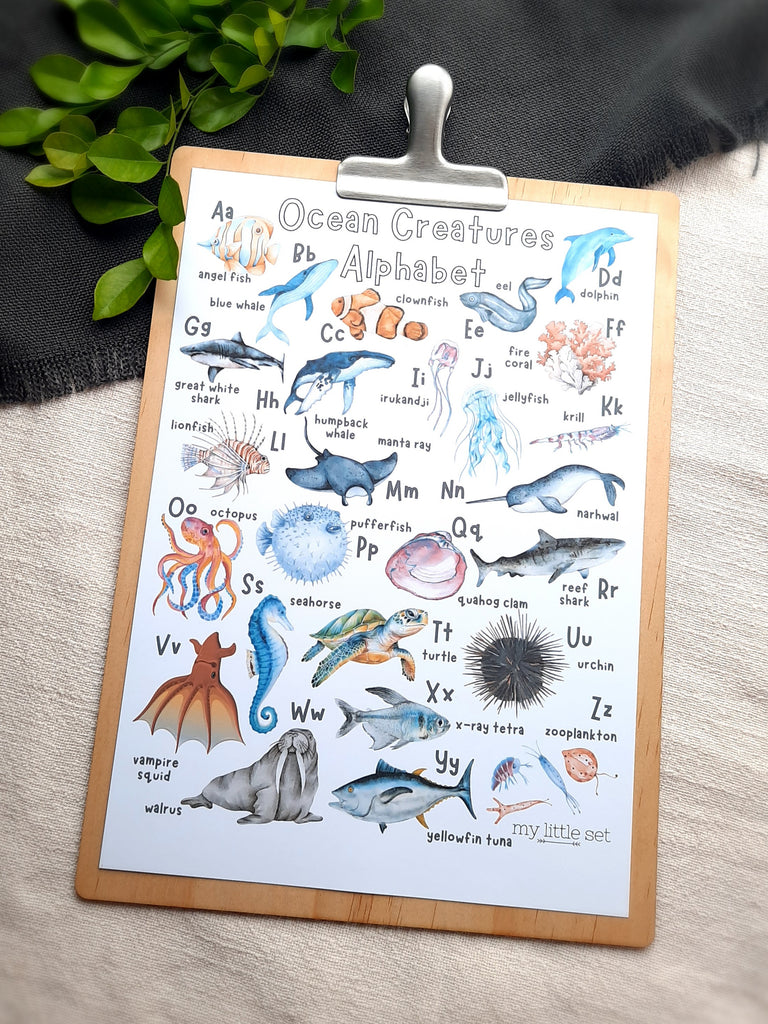 Ocean Creatures
Alphabet
Aa
angel fish
Bb
blue whale
Cc
clownfish
Dd
dolphin
Ee
eel
Ff
fire
coral
Gg
great white
shark
Hh
humpback
whale
Ii
irukandji
Jj
jellyfish
Kk
krill
Ll
lionfish
Mm
manta ray
Nn
narwhal
Oo
octopus
Pp
pufferfish
Qq
quahog clam
Rr
reef
shark
Ss
seahorse
Tt
turtle
Uu
urchin
Vv
vampire
squid
Ww
walrus
Xx
x-ray tetra
Yy
yellowfin tuna
Zz
zooplankton
my little set